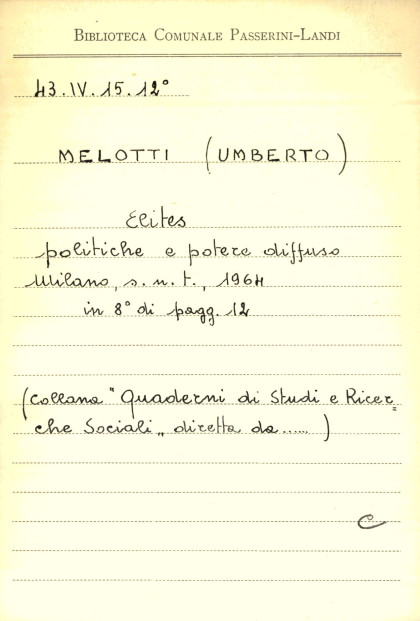 BIBLIOTECA COMUNALE PASSERINI-LANDI
43.IV.15.12°
MELOTTI (UMBERTO)
Elites
politiche e potere diffuso
Milano, s.n.t., 1964
in 8° di pagg. 12
(Collana "Quaderni di Studi e Ricer=
che Sociali„ diretta da......)
C